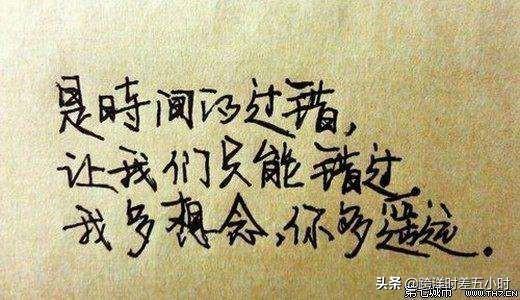 是時间的过错，
让我们只能错过.
我多想念，你多遥远.
头条 @跨洋时差五小时
第七城市 WWW.TH7.CN